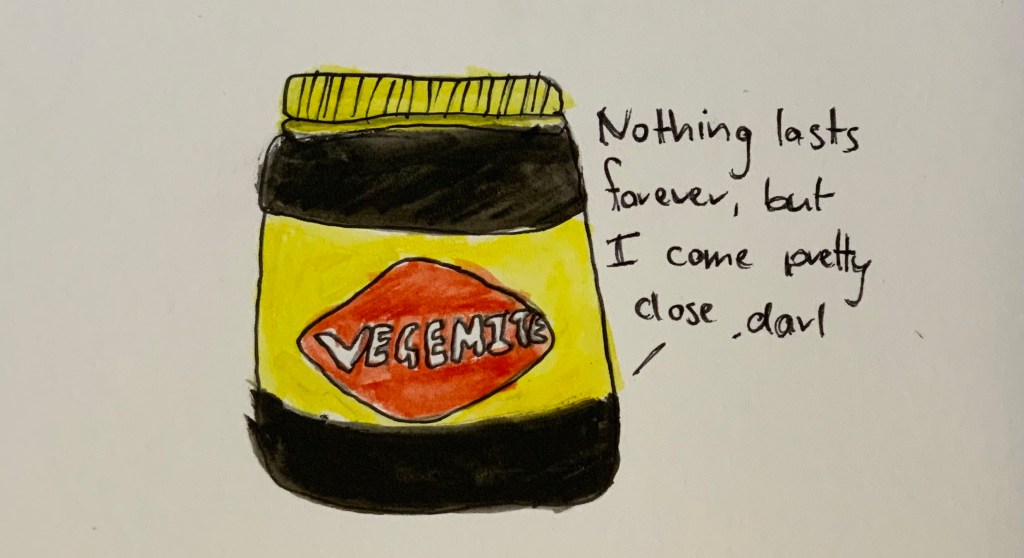 VEGEMITE
Nothing lasts
forever, but
I come pretty
close, darl